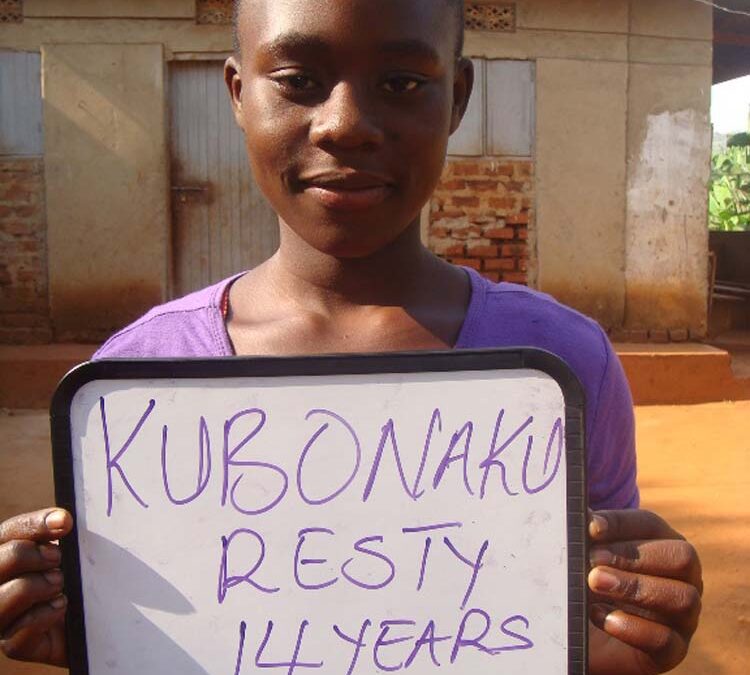 KUBONAKU
RESTY
14 YEARS